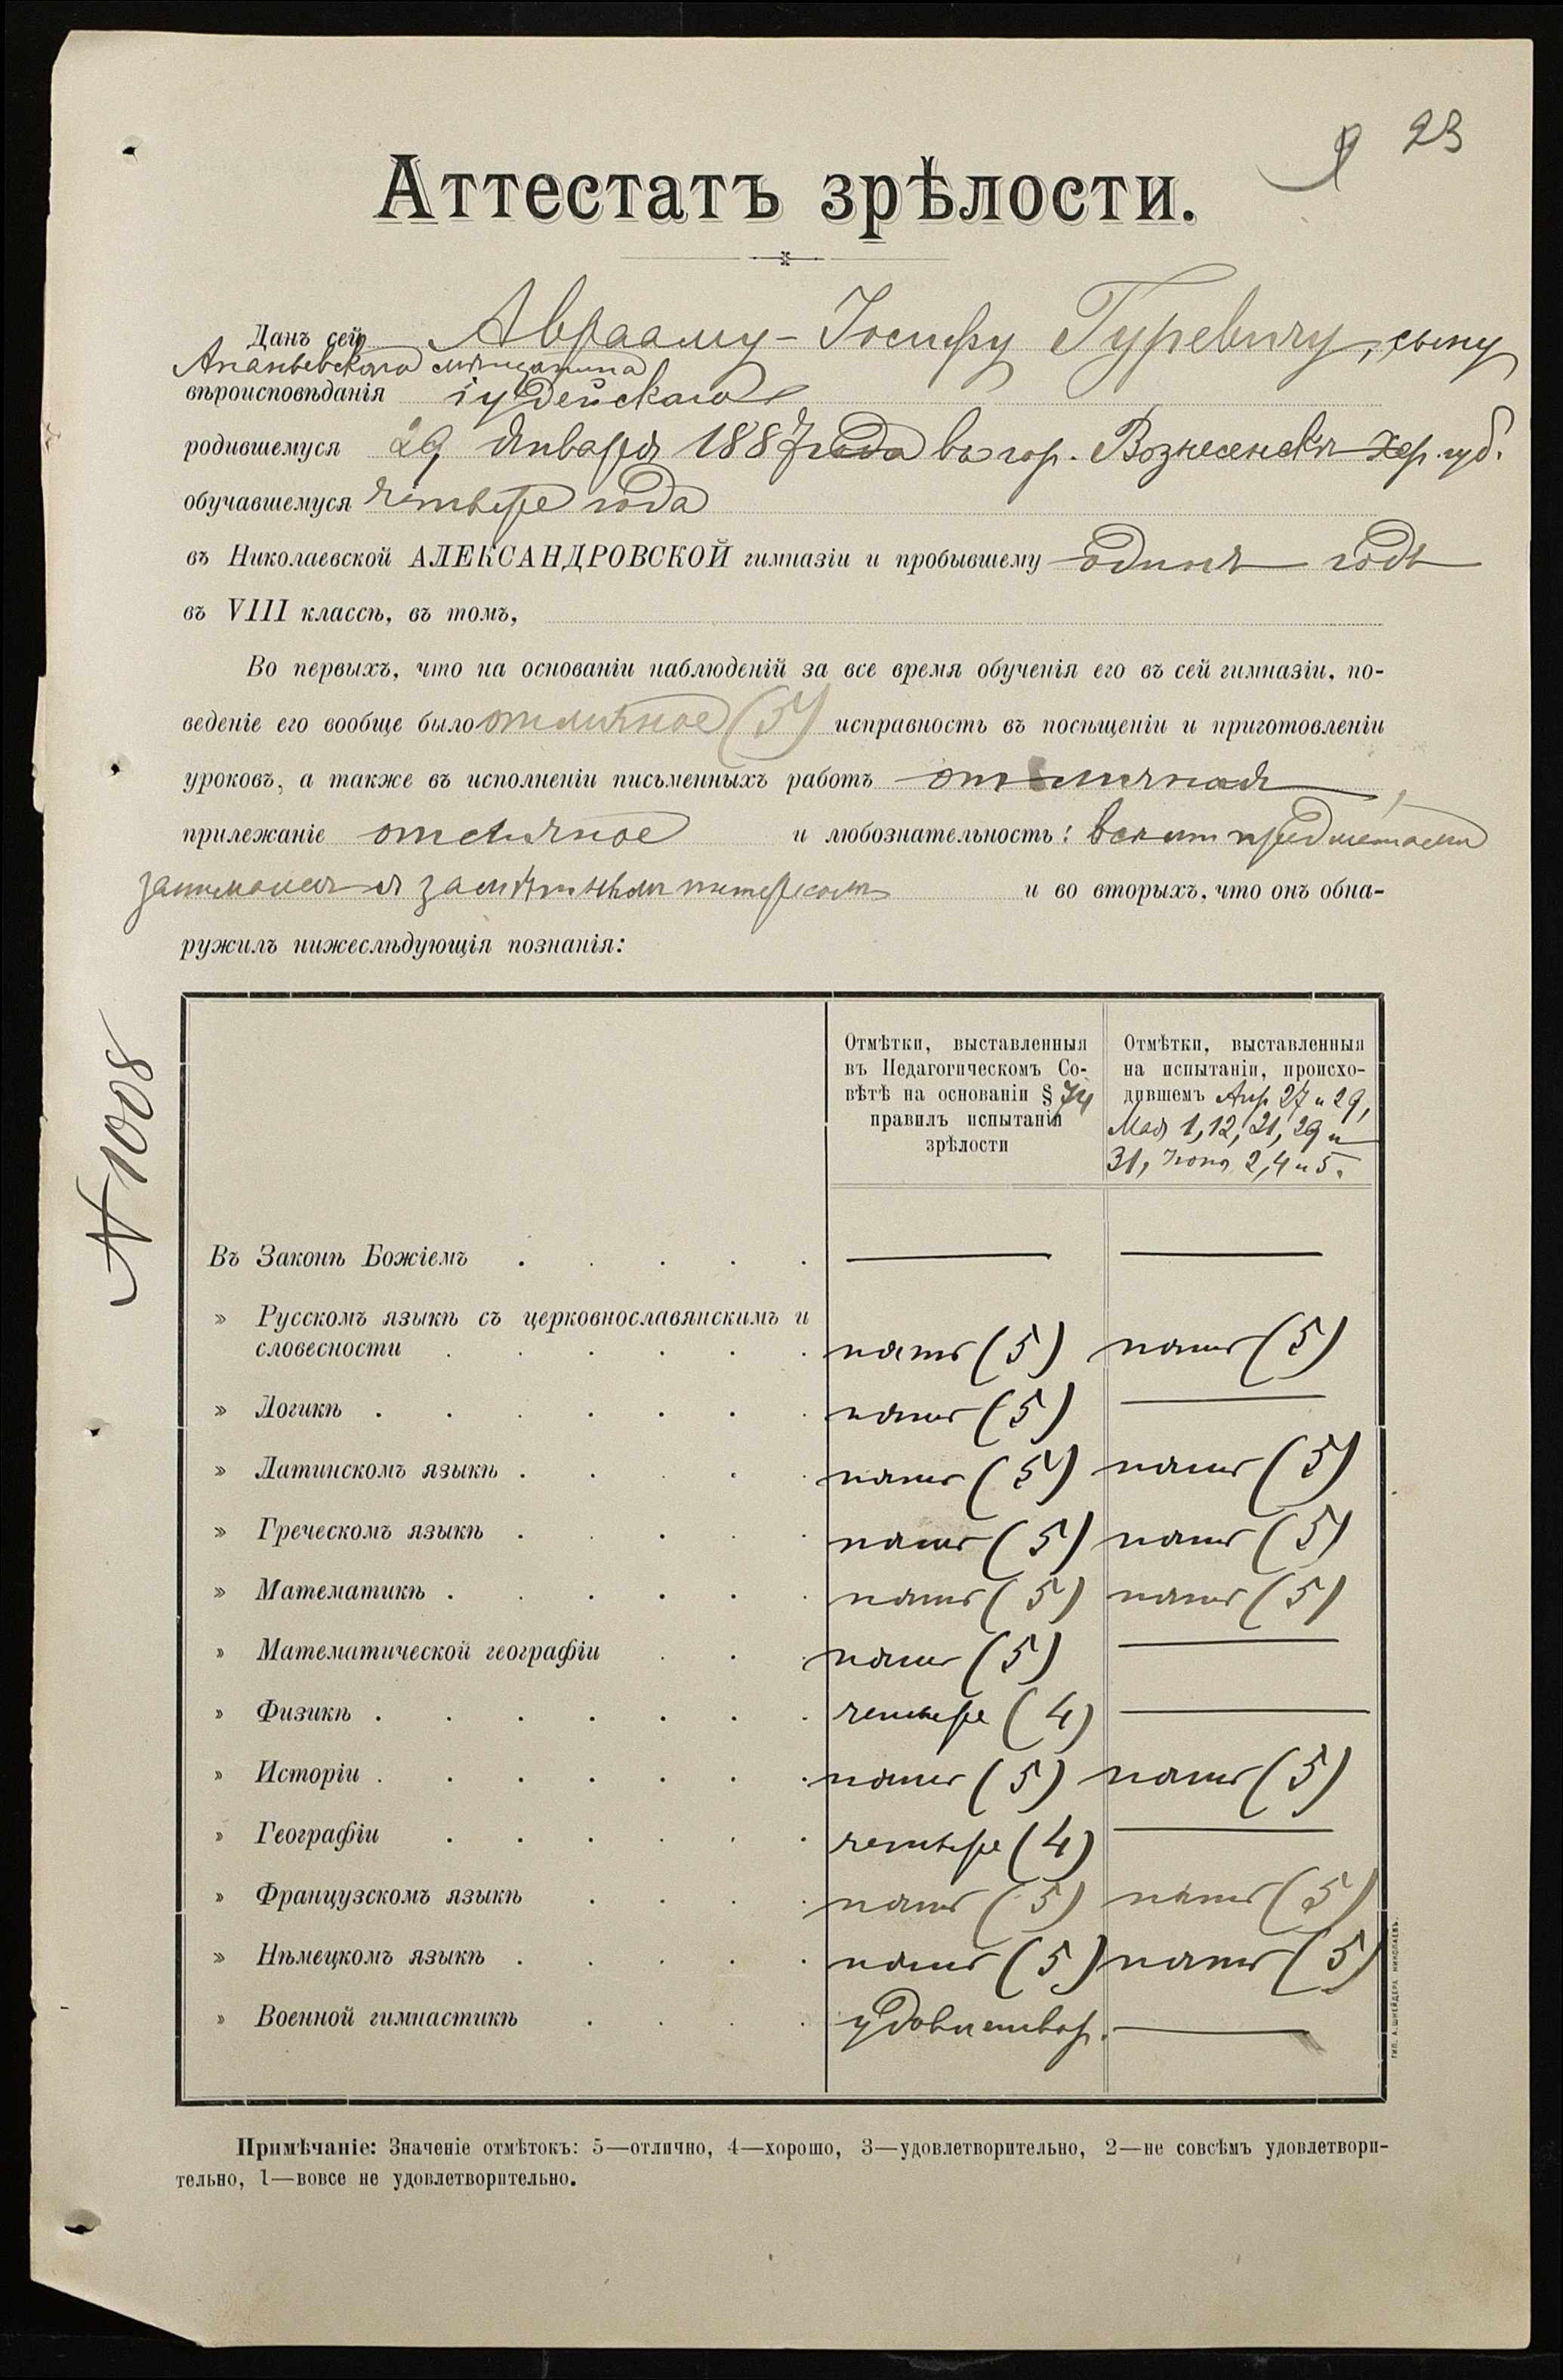 9 23
Аттестатъ зрѣлости.
Данъ сей Аврааму-Іосифу Гуревичу, сыну
Ананьевскаго мѣщанина
вѣроисповѣданія іудейскаго
родившемуся 29 Января 1887 года въ гор. Вознесенскѣ Хер. губ.
обучавшемуся четыре года
въ Николаевской АЛЕКСАНДРОВСКОЙ гимназіи и пробывшему одинъ годъ
въ VIII классѣ, въ томъ,
Во первыхъ, что на основаніи наблюденій за все время обученія его въ сей гимназіи, по-
веденіе его вообще было отличное (5) исправность въ посѣщеніи и приготовленіи
уроковъ, а также въ исполненіи письменныхъ работъ отличная,
прилежаніе отличное и любознательность: всѣми предметами
занимался съ замѣтнымъ интересомъ и во вторыхъ, что онъ обна-
ружилъ нижеслѣдующія познанія:
N 1008
Отмѣтки, выставленныя
въ Педагогическомъ Со-
вѣтѣ на основаніи § 74
правилъ испытаній
зрѣлости
Отмѣтки, выставленныя
на испытаніи, происхо-
дившемъ Апр 27 и 29,
Мая 1, 12, 21, 29 и
31, Іюня 2, 4 и 5.
Въ Законѣ Божіемъ . . . . . — —
» Русскомъ языкѣ съ церковнославянскимъ и
словесности . . . . . . пять (5) пять (5)
» Логикѣ . . . . . . . пять (5) —
» Латинскомъ языкѣ . . . . . пять (5) пять (5)
» Греческомъ языкѣ . . . . . пять (5) пять (5)
» Математикѣ . . . . . . пять (5) пять (5)
» Математической географіи . . . пять (5) —
» Физикѣ . . . . . . . четыре (4) —
» Исторіи . . . . . . . пять (5) пять (5)
» Географіи . . . . . . четыре (4) —
» Французскомъ языкѣ . . . . пять (5) пять (5)
» Нѣмецкомъ языкѣ . . . . . пять (5) пять (5)
» Военной гимнастикѣ . . . . удовлетвор. —
ТИП. А. ШНЕЙДЕРА НИКОЛАЕВЪ.
Примѣчаніе: Значеніе отмѣтокъ: 5—отлично, 4—хорошо, 3—удовлетворительно, 2—не совсѣмъ удовлетвори-
тельно, 1—вовсе не удовлетворительно.